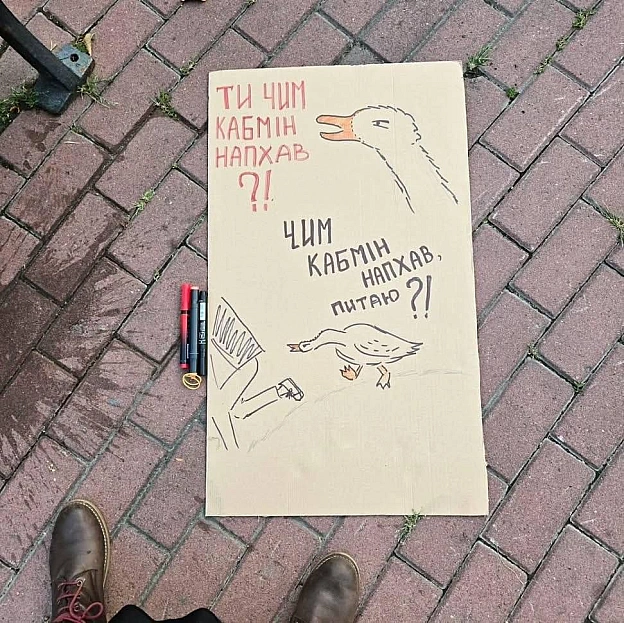 ТИ ЧИМ
КАБМІН
НАПХАВ
?!
ЧИМ
КАБМІН
НАПХАВ,
ПИТАЮ ?!